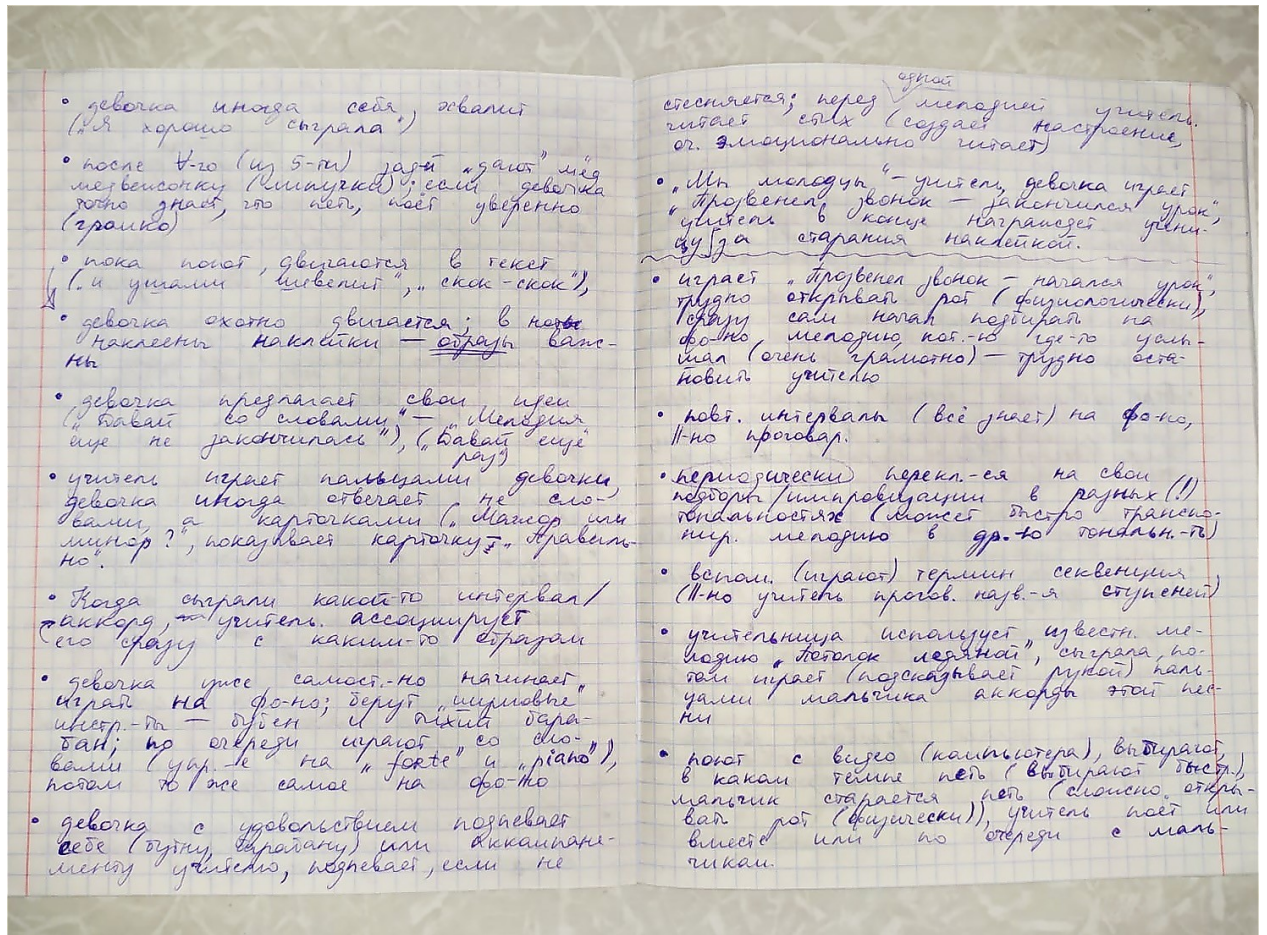 • девочка иногда себя хвалит
(„Я хорошо сыграла")
• после ∀-го (из 5-ти) зад-й „дают" мёд
медвежоночку (липучка); если девочка
точно знает, что петь, поёт уверенно
(громко)
• пока поют, двигаются в текст
(„и ушами шевелит", „скок-скок"),
• девочка охотно двигается, в ноты
наклеены наклейки — образы важ-
ны
• девочка предлагает свои идеи
(„Давай со словами" — „Мелодия
еще не закончилась"), („Давай ещё
раз")
• учитель играет пальцами девочки,
девочка иногда отвечает не сло-
вами, а карточками („Мажор или
минор?", показывает карточку – „Правиль-
но".
• Когда сыграли какой-то интервал/
аккорд, учитель. ассоциирует
его сразу с каким-то образом
• девочка уже самост.-но начинает
играть на фо-но; берут „шумовые"
инстр-ты — бубен и тихий бара-
бан; по очереди играют со сло-
вами (упр.-е на „forte" и „piano"),
потом то же самое на фо-но
• девочка с удовольствием подпевает
себе (бубну, барабану) или аккомпане-
менту учителю, подпевает, если не
одной
стесняется; перед мелодией учитель.
читает стих (создает настроение,
оч. эмоционально читает)
• „Мы молодцы" – учитель, девочка играет
„Прозвенел звонок – закончился урок",
учитель в конце награждает учени-
цу за старания наклейкой.
• играет „Прозвенел звонок – начался урок",
трудно открывать рот (физиологически),
сразу сам начал подбирать на
фо-но мелодию, кот.-ю где-то услы-
шал (очень грамотно) – трудно оста-
новить учителю
• повт. интервалы (всё знает) на фо-но,
||-но проговар.
• периодически перекл-ся на свои
подборы/импровизации в разных (!)
тональностях (может быстро транспо-
нир. мелодию в др.-ю тональн.-ть)
• вспом. (играют) термин секвенция
(||-но учитель прогов. назв.-я ступеней)
• учительница использует известн. ме-
лодию „Потолок ледяной", сыграла, по-
том играет (подсказывает рукой) паль-
цами мальчика аккорды этой пес-
ни
• поют с видео (компьютера), выбирают,
в каком темпе петь (выбирают быстр.),
мальчик старается петь (сложно откры-
вать рот (физически)), учитель поёт или
вместе или по очереди с маль-
чиком.